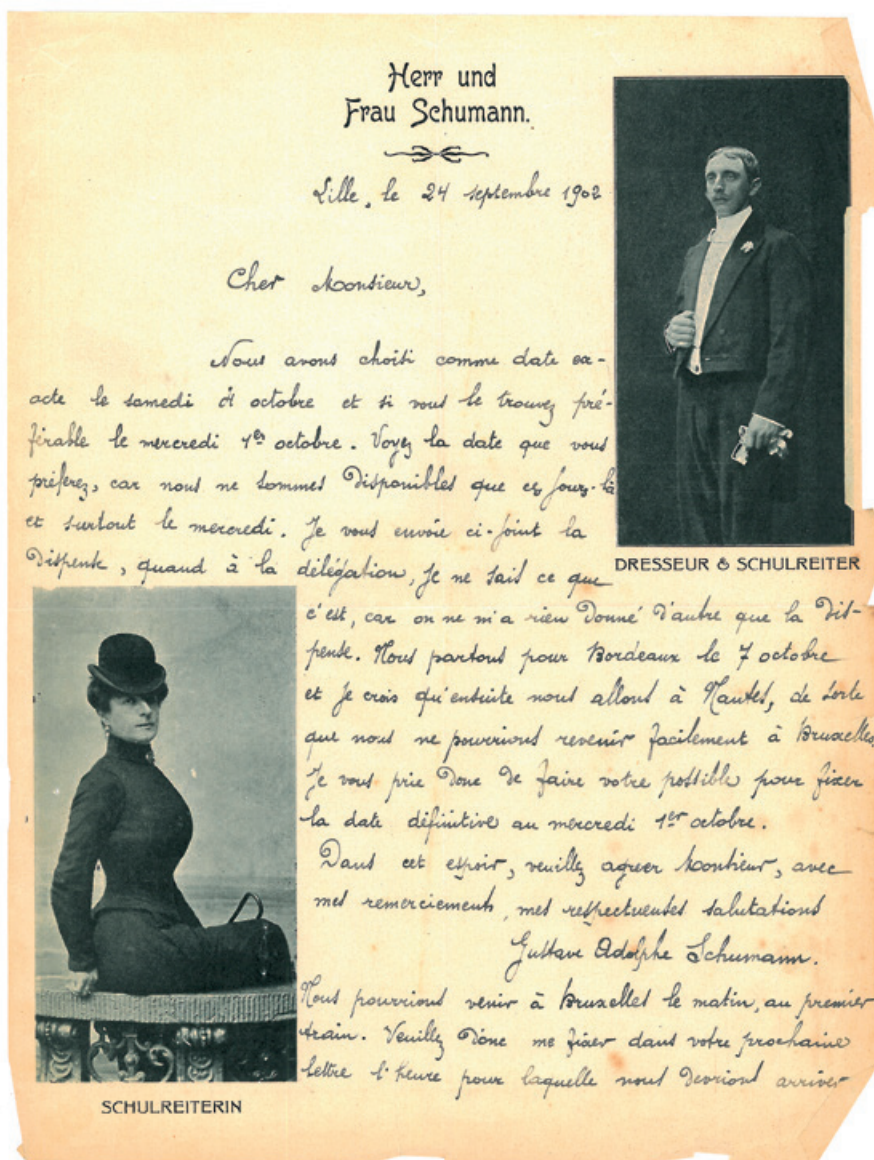 Herr und
Frau Schumann.
Lille, le 24 septembre 1902
Cher Monsieur,
Nous avons choisi comme date ex-
acte le samedi 4 octobre et si vous le trouvez pré-
férable le mercredi 1er octobre. Voyez la date que vous
préferez, car nous ne sommes disponibles que ces jours-là
et surtout le mercredi. Je vous envoie ci-joint la
dispense, quand à la délégation, je ne sais ce que
c'est, car on ne m'a rien donné d'autre que la dis-
pense. Nous partons pour Bordeaux le 7 octobre
et je crois qu'ensuite nous allons à Nantes, de sorte
que nous ne pourrions revenir facilement à Bruxelles.
Je vous prie donc de faire votre possible pour fixer
la date définitive au mercredi 1er octobre.
Dans cet espoir, veuillez agreer Monsieur, avec
mes remerciements, mes respectueuses salutations
Gustave Adolphe Schumann.
Nous pourrions venir à Bruxelles le matin, au premier
train. Veuillez donc me fixer dans votre prochaine
lettre l'heure pour laquelle nous devrions arriver
DRESSEUR & SCHULREITER
SCHULREITERIN